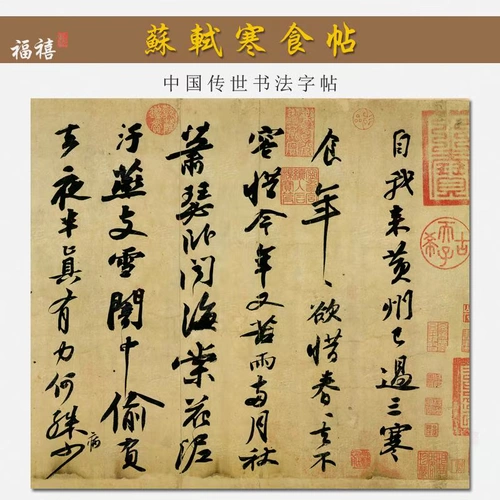 蘇軾寒食帖
福禧
中国传世书法字帖
自我来黄州已過三寒
食年ヽ欲惜春ヽ去不
容惜今年又苦雨兩月秋
蕭瑟卧聞海棠花泥
汙燕支雪闇中偷負
去夜半真有力何殊少
病
古希天子